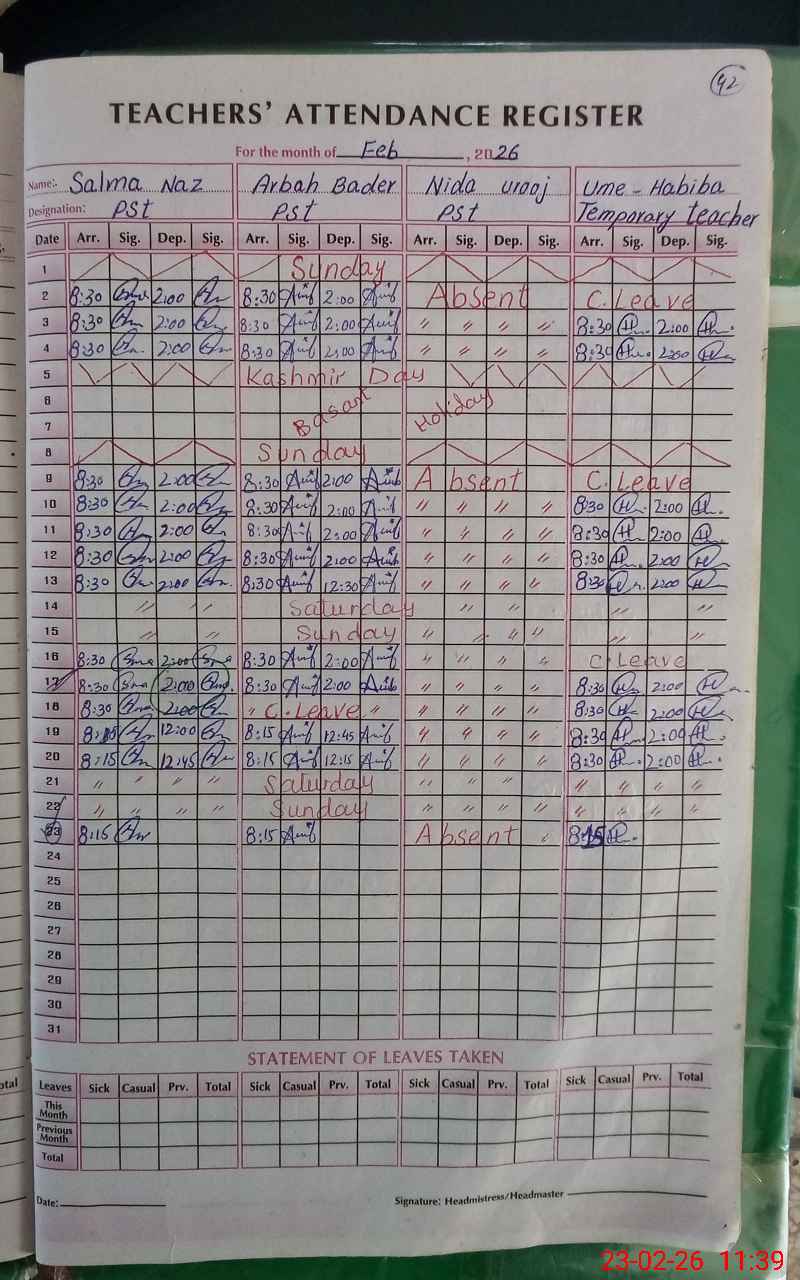 42
TEACHERS' ATTENDANCE REGISTER
For the month of Feb, 2026
Name: Salma Naz Arbah Bader Nida urooj Ume-Habiba
Designation: PSt PSt PSt Temporary teacher
Date Arr. Sig. Dep. Sig. Arr. Sig. Dep. Sig. Arr. Sig. Dep. Sig. Arr. Sig. Dep. Sig.
1 Sunday
2 8:30 2:00 8:30 2:00 Absent C. Leave
3 8:30 2:00 8:30 2:00 " " " " 8:30 2:00
4 8:30 2:00 8:30 2:00 " " " " 8:30 2:00
5 Kashmir Day
6 Basant Holiday
7
8 Sunday
9 8:30 2:00 8:30 2:00 Absent C. Leave
10 8:30 2:00 8:30 2:00 " " " " 8:30 2:00
11 8:30 2:00 8:30 2:00 " " " " 8:30 2:00
12 8:30 2:00 8:30 2:00 " " " " 8:30 2:00
13 8:30 2:00 8:30 12:30 " " " " 8:30 2:00
14 " " Saturday " " " "
15 " " Sunday " " " " " "
16 8:30 2:00 8:30 2:00 " " " " C. Leave
17 8:30 2:00 8:30 2:00 " " " " 8:30 2:00
18 8:30 2:00 " C. Leave " " " " " 8:30 2:00
19 8:15 12:00 8:15 12:45 " " " " 8:30 2:00
20 8:15 12:45 8:15 12:15 " " " " 8:30 2:00
21 " " " " Saturday " " " " " " "
22 " " " " Sunday " " " " " " " "
23 8:15 8:15 Absent " 8:15
24
25
26
27
28
29
30
31
STATEMENT OF LEAVES TAKEN
Leaves Sick Casual Prv. Total Sick Casual Prv. Total Sick Casual Prv. Total Sick Casual Prv. Total
This Month
Previous Month
Total
Date: Signature: Headmistress/Headmaster
23-02-26 11:39